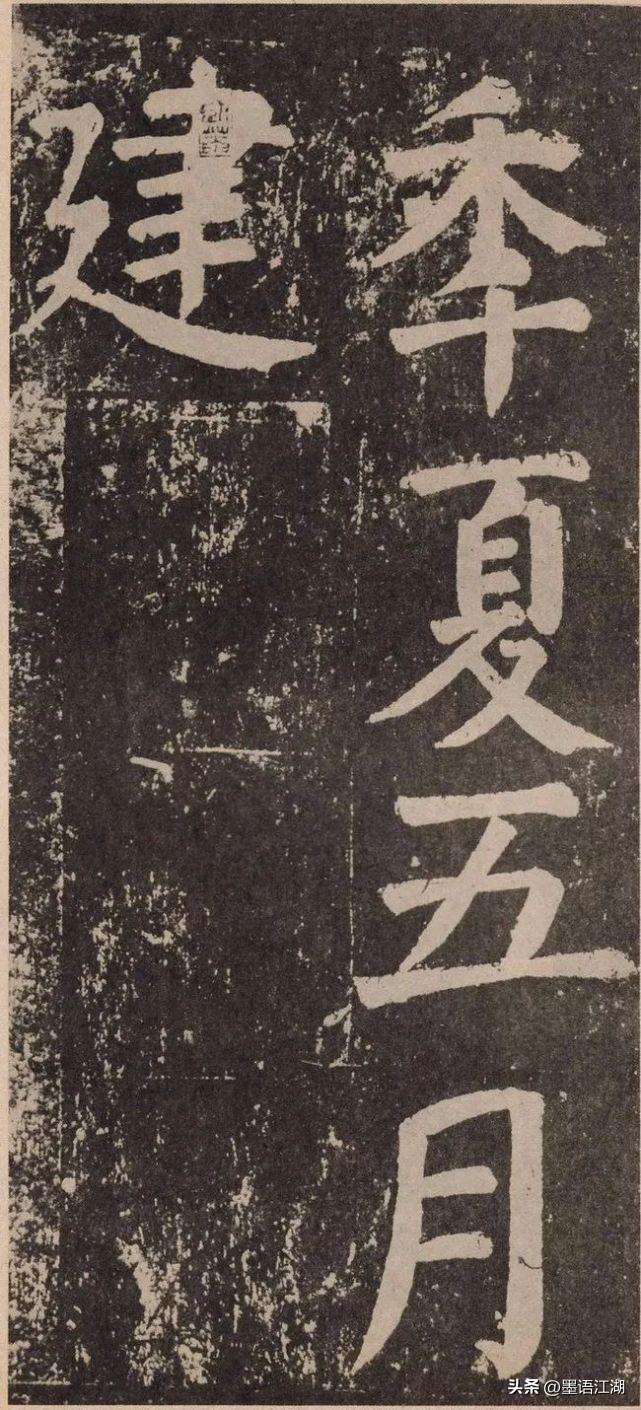 秊夏五月
建
头条 @墨语江湖